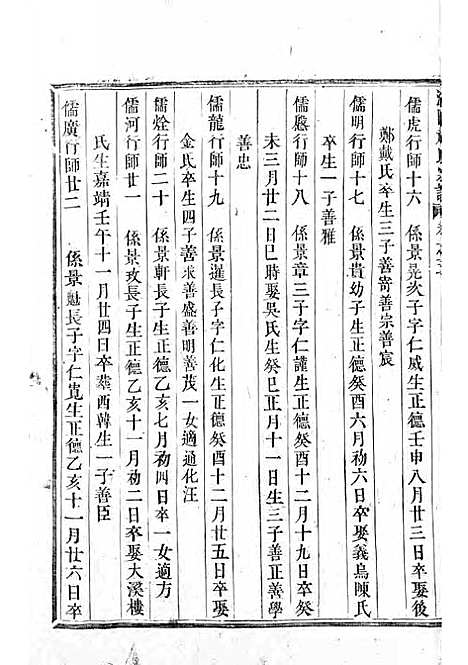 儒虎行師十六　係景晃次子字仁威生正德壬申八月廿三日卒娶後
鄭戴氏卒生三子善嵜善宗善宸
儒明行師十七　係景貴幼子生正德癸酉六月初六日卒娶義烏陳氏
卒生一子善雅
儒　行師十八　係景章三子字仁護生正德癸酉十二月十九日卒癸
未三月廿二日巳時娶吳氏生癸巳正月十一日生三子善正善學
善忠
儒龍行師十九　係景暹長子字仁化生正德癸酉十二月廿五日卒娶
金氏卒生四子善求善盛善明善茂一女適通化汪
儒烇行師二十　係景軒長子生正德乙亥八月初四日卒一女適方
儒河行師廿一　係景玫長子生正德乙亥十一月初二日卒娶大溪樓
氏生嘉靖壬午十一月廿四日卒葬西韓生一子善臣
儒廣行師廿二　係景魁長子字仁寬生正德乙亥十一月廿六日卒